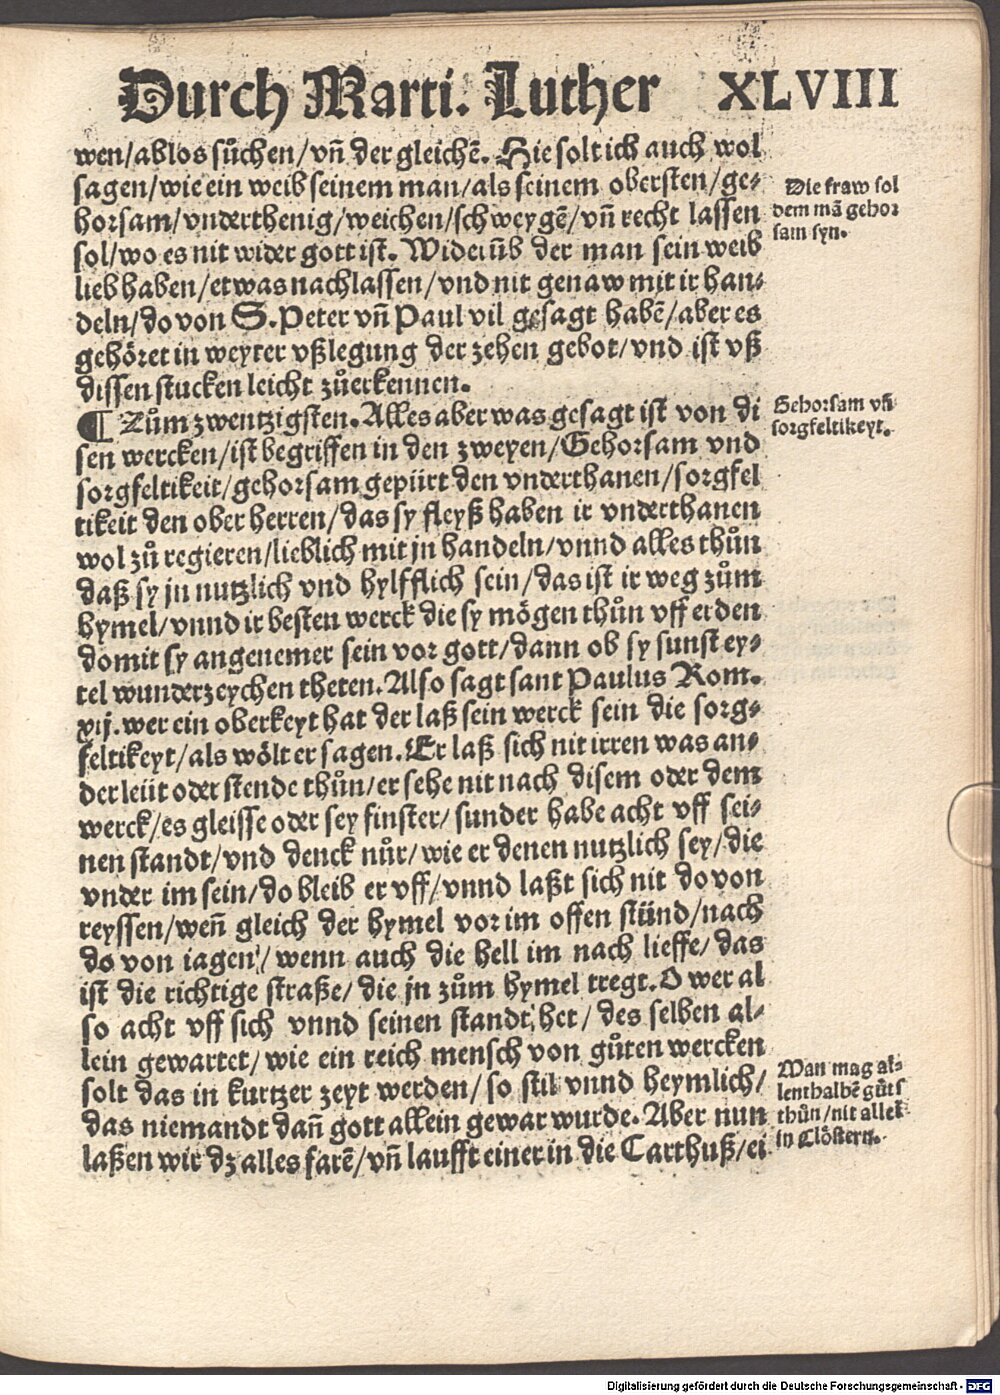 Durch Marti. Luther XLVIII
wen/ablos sůchen/vñ der gleichẽ. Hie solt ich auch wol
sagen/wie ein weib seinem man/als seinem obersten/ge⸗
horsam/vnderthenig/weichen/schweygẽ/vñ recht lassen
sol/wo es nit wider gott ist. Widerũb der man sein weib
lieb haben/etwas nachlassen/vnd nit genaw mit ir han⸗
deln/do von S. Peter vñ Paul vil gesagt habẽ/aber es
gehöret in weyter vßlegung der zehen gebot/vnd ist vß
dissen stucken leicht zůerkennen.
Die fraw sol
dem mã gehor
sam syn.
¶ Zům zwentzigsten. Alles aber was gesagt ist von di
sen wercken/ist begriffen in den zweyen/Gehorsam vnd
sorgfeltikeit/gehorsam gepürt den vnderthanen/sorgfel
tikeit den ober herren/das sy fleyß haben ir vnderthanen
wol zů regieren/lieblich mit jn handeln/vnnd alles thůn
daß sy jn nutzlich vnd hylfflich sein/das ist ir weg zům
hymel/vnnd ir besten werck die sy mögen thůn vff erden
domit sy angenemer sein vor gott/dann ob sy sunst ey⸗
tel wunderzeychen theten. Also sagt sant Paulus Rom.
xij. wer ein oberkeyt hat der laß sein werck sein die sorg⸗
feltikeyt/als wölt er sagen. Er laß sich nit irren was an⸗
der leüt oder stende thůn/er sehe nit nach disem oder dem
werck/es gleisse oder sey finster/sunder habe acht vff sei⸗
nen standt/vnd denck nůr/wie er denen nutzlich sey/die
vnder im sein/do bleib er vff/vnnd laßt sich nit do von
reyssen/weñ gleich der hymel vor im offen stünd/nach
do von iagen/wenn auch die hell im nach lieffe/das
ist die richtige straße/die jn zům hymel tregt. O wer al
so acht vff sich vnnd seinen standt het/des selben al⸗
lein gewartet/wie ein reich mensch von gůten wercken
solt das in kurtzer zeyt werden/so stil vnnd heymlich/
das niemandt dañ gott allein gewar wurde. Aber nun
laßen wir dz alles farẽ/vñ laufft einer in die Carthuß/ei
Gehorsam vñ
sorgfeltikeyt.
Man mag al⸗
lenthalbẽ gůts
thůn/nit allei
in Clöstern.
Digitalisierung gefördert durch die Deutsche Forschungsgemeinschaft - DFG